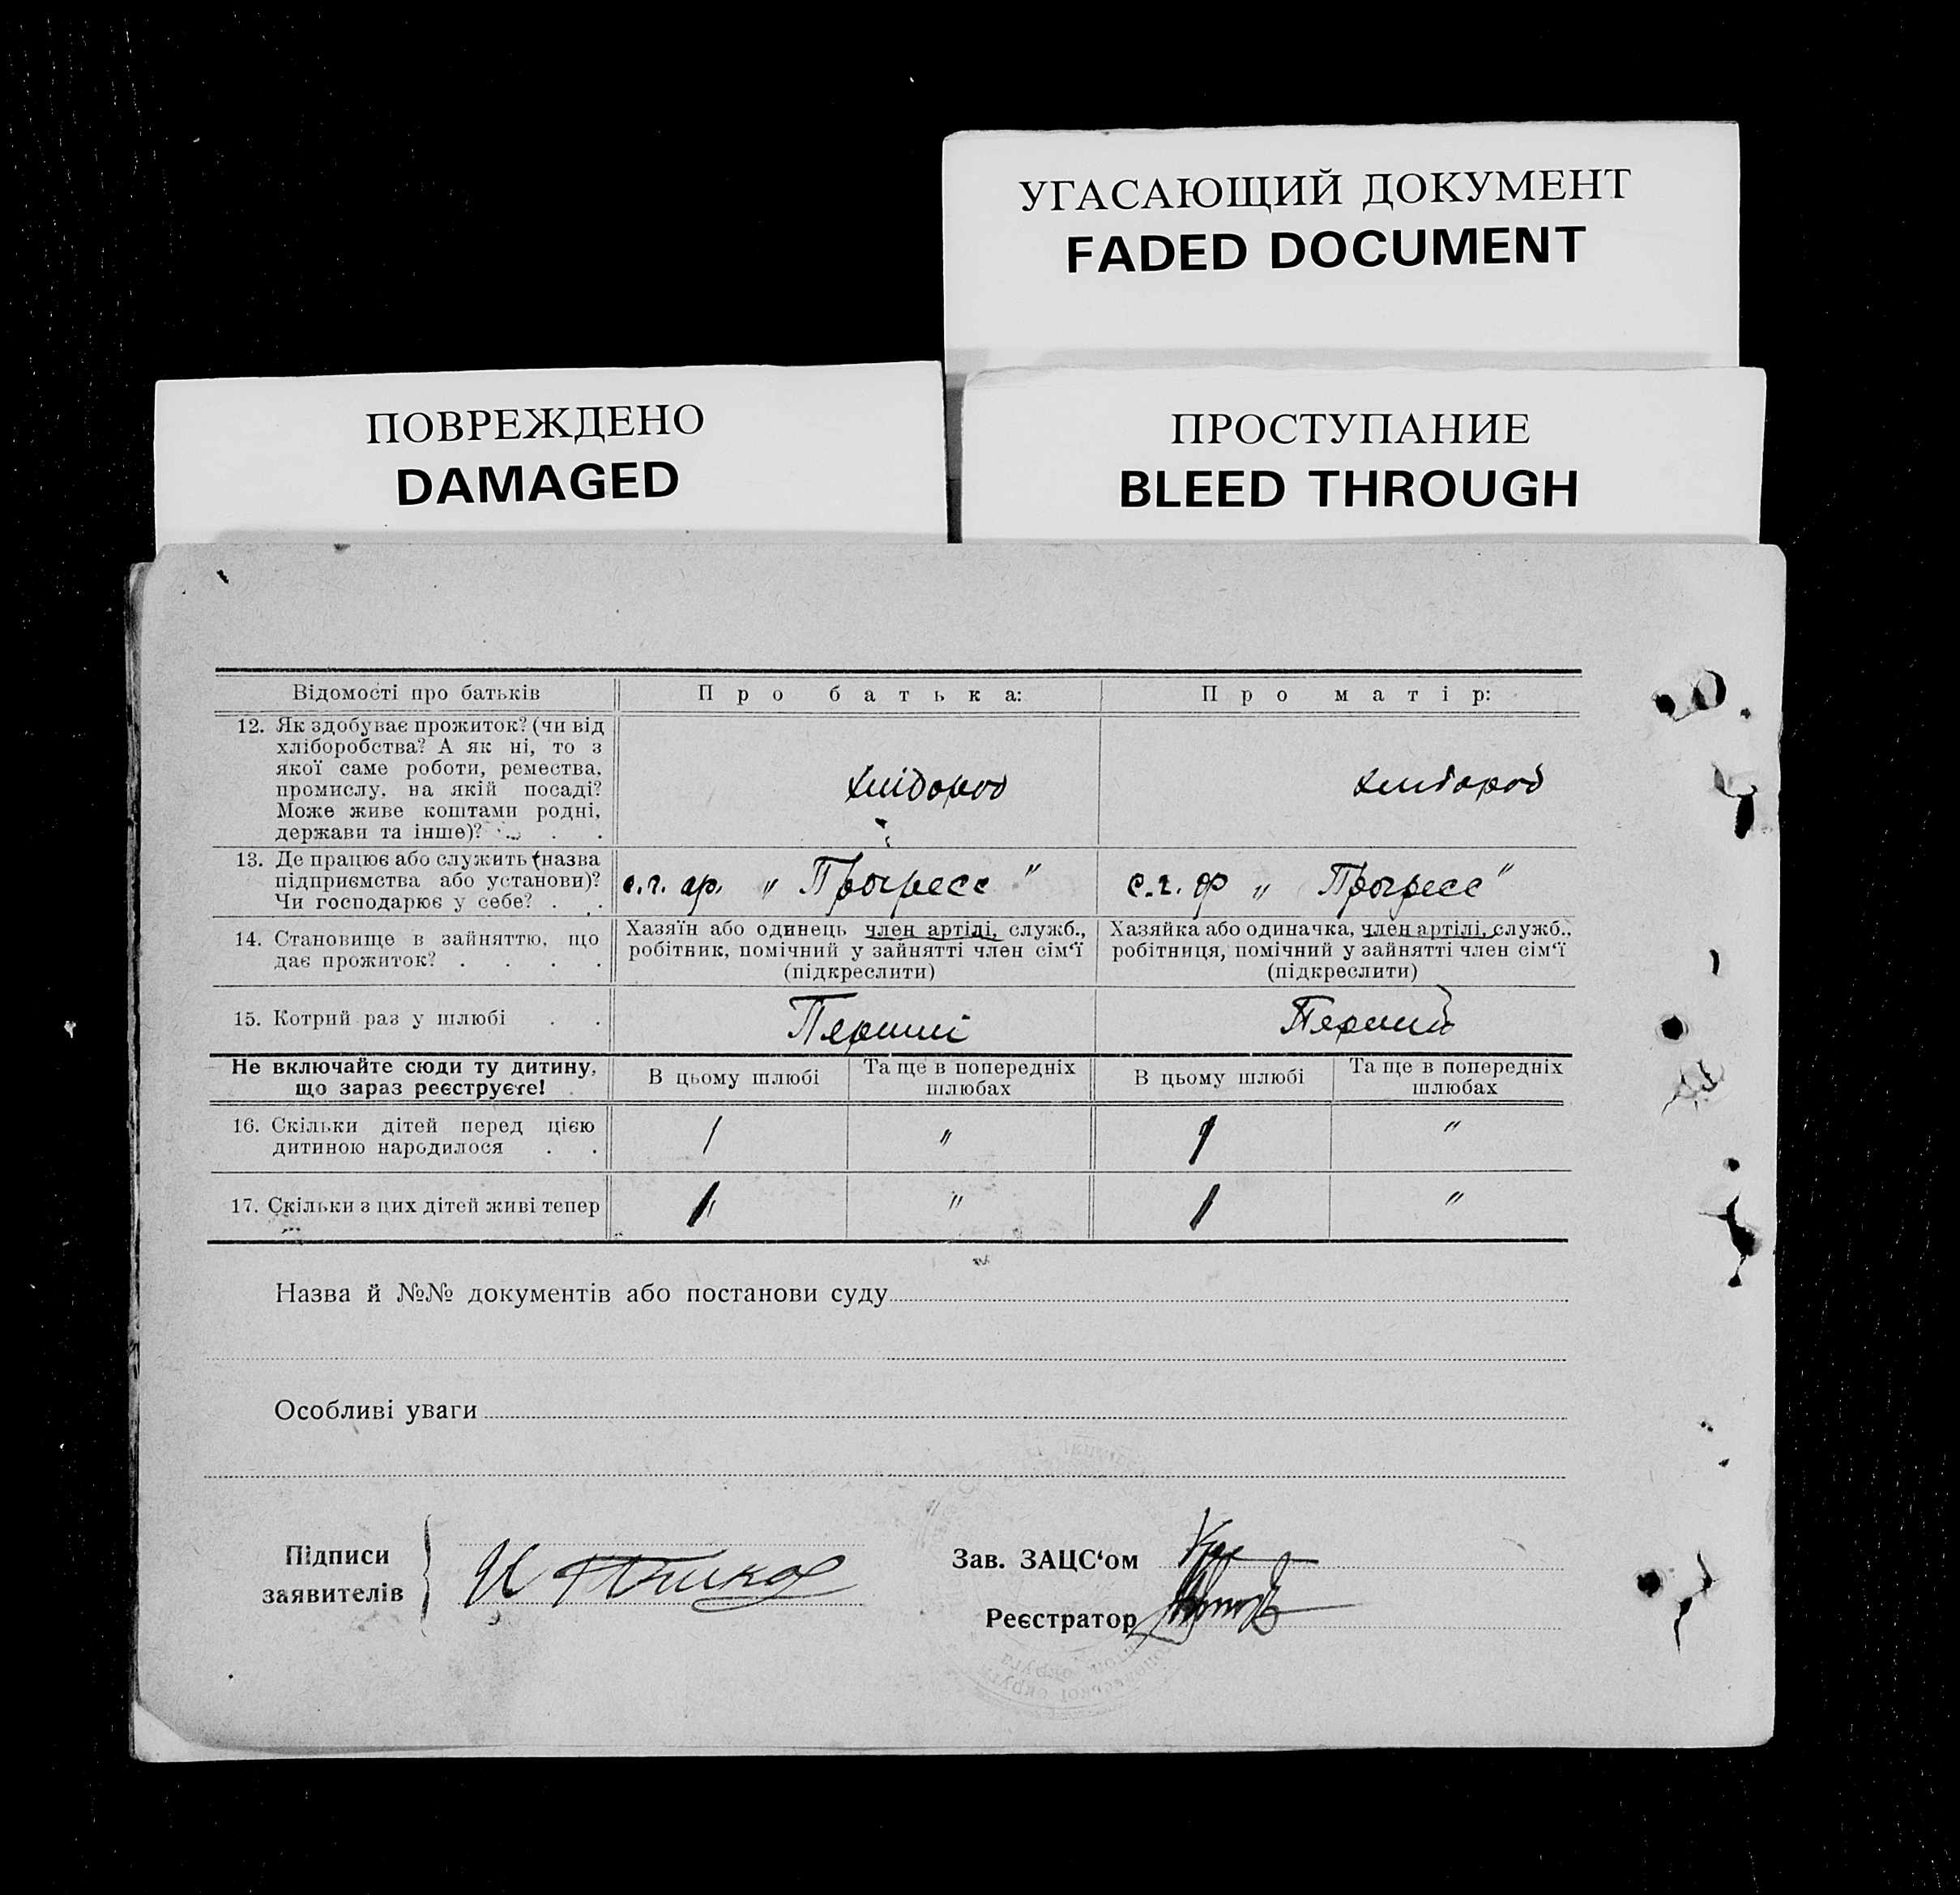 УГАСАЮЩИЙ ДОКУМЕНТ
FADED DOCUMENT
ПОВРЕЖДЕНО
DAMAGED
ПРОСТУПАНИЕ
BLEED THROUGH
Відомості про батьків
Про батька:
Про матір:
12. Як здобуває прожиток? (чи від
хліборобства? А як ні, то з
якої саме роботи, ремества,
промислу, на якій посаді?
Може живе коштами родні,
держави та інше)? . .
хлібороб
хлибороб
13. Де працює або служить (назва
підприємства або установи)?
Чи господарює у себе? . .
с.г. ар. „ Прогресс "
с.г. ар „ Прогресс"
14. Становище в зайняттю, що
дає прожиток? . . . .
Хазяїн або одинець член артілі, служб.,
робітник, помічний у зайнятті член сім‘ї
(підкреслити)
Хазяйка або одиначка, член артілі, служб.,
робітниця, помічний у зайнятті член сім‘ї
(підкреслити)
15. Котрий раз у шлюбі . .
Перший
Перший
Не включайте сюди ту дитину,
що зараз реєструєте!
В цьому шлюбі
Та ще в попередніх
шлюбах
В цьому шлюбі
Та ще в попередніх
шлюбах
16. Скільки дітей перед цією
дитиною народилося . .
1
"
1
"
17. Скільки з цих дітей живі тепер
1
"
1
"
Назва й №№ документів або постанови суду
Особливі уваги
Підписи
заявителів
Зав. ЗАЦС‘ом
Реєстратор